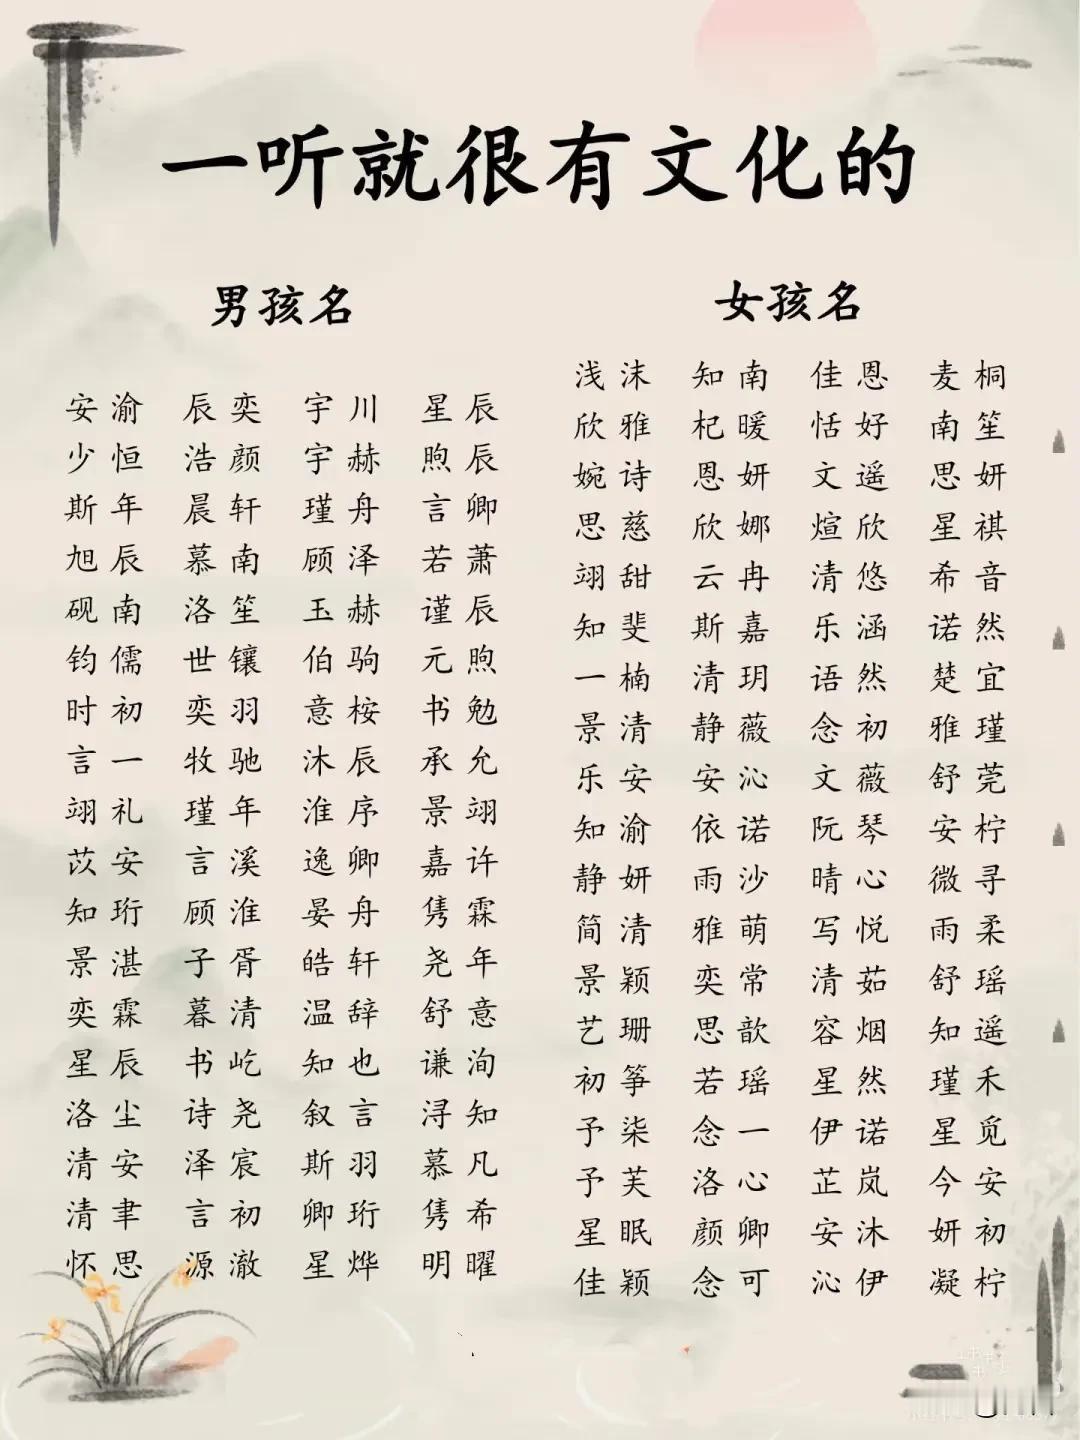 一听就很有文化的
男孩名
安渝 辰奕 宇川 星辰
少恒 浩颜 宇赫 煦辰
斯年 晨轩 瑾舟 言卿
旭辰 慕南 顾泽 若萧
砚南 洛笙 玉赫 谨辰
钧儒 世镶 伯驹 元煦
时初 奕羽 意桉 书勉
言一 牧驰 沐辰 承允
翊礼 瑾年 淮序 景翊
苡安 言溪 逸卿 嘉许
知珩 顾淮 晏舟 隽霖
景湛 子胥 皓轩 尧年
奕霖 暮清 温辞 舒意
星辰 书屹 知也 谦洵
洛尘 诗尧 叙言 浔知
清安 泽宸 斯羽 慕凡
清聿 言初 卿珩 隽希
怀思 源澈 星烨 明曜
女孩名
浅沫 知南 佳恩 麦桐
欣雅 杞暖 恬好 南笙
婉诗 恩妍 文遥 思妍
思慈 欣娜 煊欣 星祺
翊甜 云冉 清悠 希音
知斐 斯嘉 乐涵 诺然
一楠 清玥 语然 楚宜
景清 静薇 念初 雅瑾
乐安 安沁 文薇 舒莞
知渝 依诺 阮琴 安柠
静妍 雨沙 晴心 微寻
简清 雅萌 写悦 雨柔
景颖 奕常 清茹 舒瑶
艺珊 思歆 容烟 知遥
初筝 若瑶 星然 瑾禾
予柒 念一 伊诺 星觅
予芙 洛心 芷岚 今安
星眠 颜卿 安沐 妍初
佳颖 念可 沁伊 凝柠